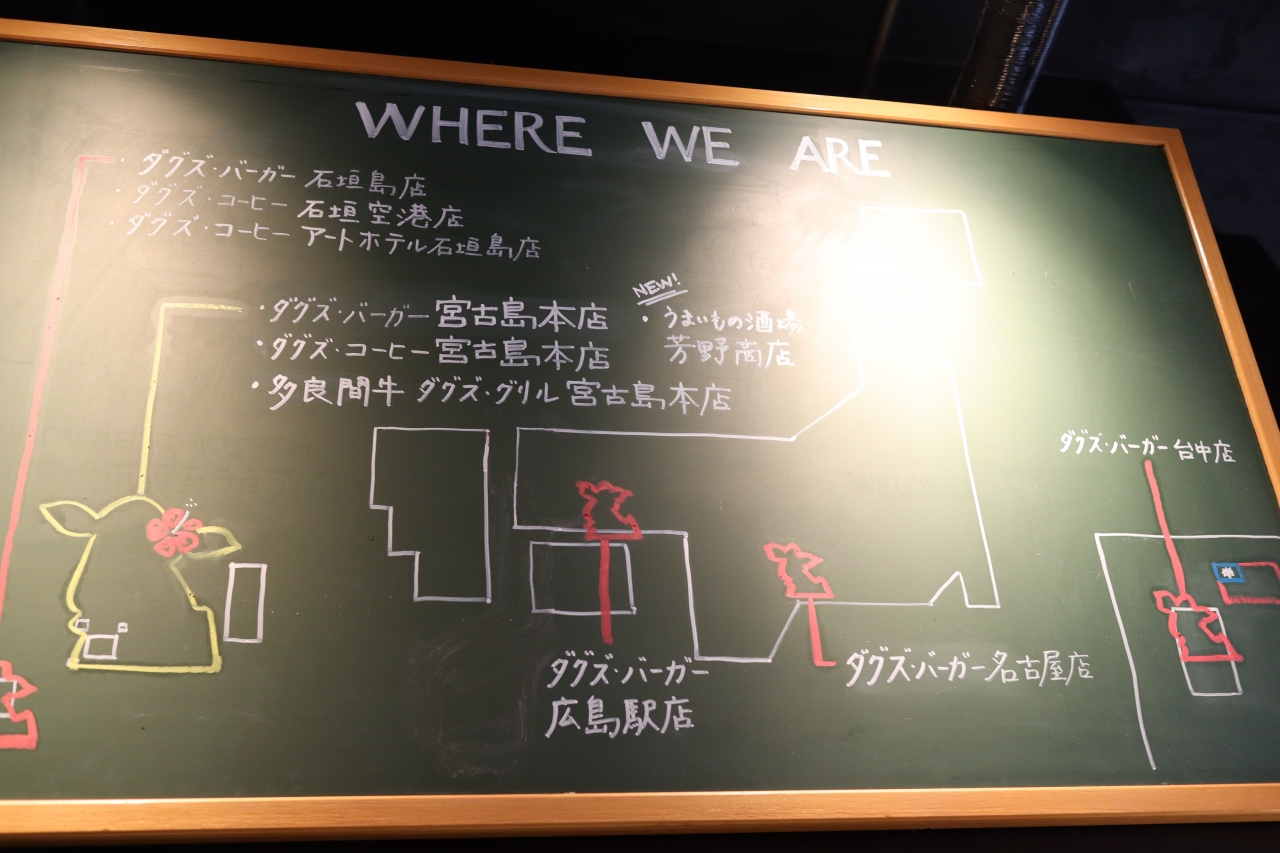 WHERE WE ARE
・ダグズ・バーガー 石垣島店
・ダグズ・コーヒー 石垣空港店
・ダグズ・コーヒー アートホテル石垣島店
・ダグズ・バーガー 宮古島本店
・ダグズ・コーヒー 宮古島本店
・多良間牛 ダグズ・グリル 宮古島本店
NEW!
・うまいもの酒場
芳野商店
ダグズ・バーガー 台中店
ダグズ・バーガー
広島駅店
ダグズ・バーガー 名古屋店